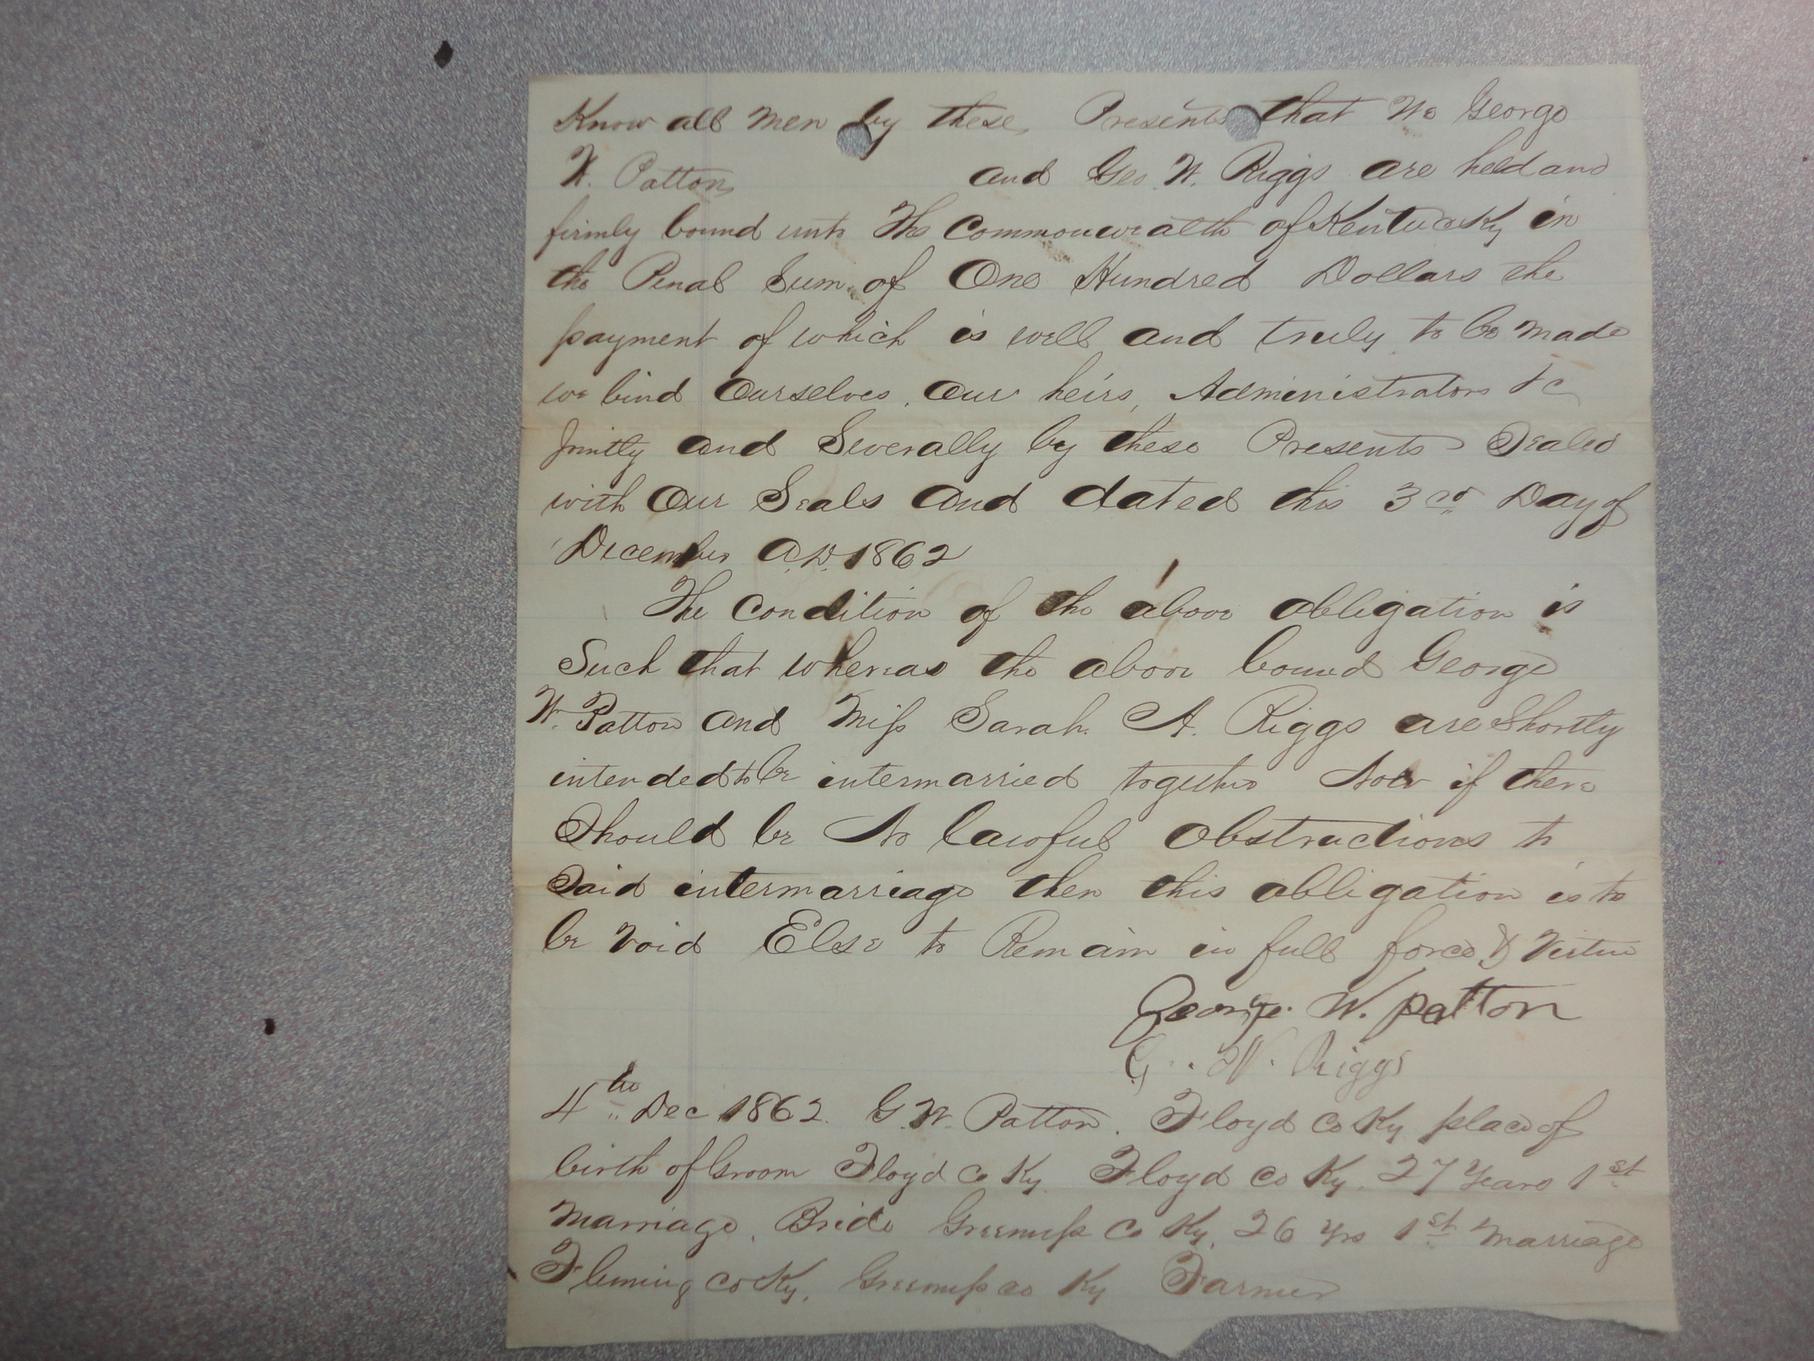 Know all men by these Presents that We George
W. Patton and Geo. W. Riggs are held and
firmly bound unto the Commonwealth of Kentucky in
the Penal Sum of One Hundred Dollars the
payment of which is well and truly to be made
we bind ourselves, our heirs, Administrators &c
Jointly and Severally by these Presents Sealed
with our Seals and dated this 3rd Day of
December A.D. 1862
The condition of the above obligation is
Such that whereas the above bound George
W. Patton and Miss Sarah A. Riggs are Shortly
intended to be intermarried together Now if there
Should be No lawful obstructions to
Said intermarriage then this obligation is to
be void Else to Remain in full force & Virtue
George. W. patton
G. W. Riggs
4th Dec 1862. G. W. Patton. Floyd Co Ky place of
birth of Groom Floyd Co Ky. Floyd Co Ky. 27 Years 1st
Marriage. Bride Greenup Co Ky. 26 yrs 1st Marriage
Fleming co Ky. Greenup co Ky Farmer